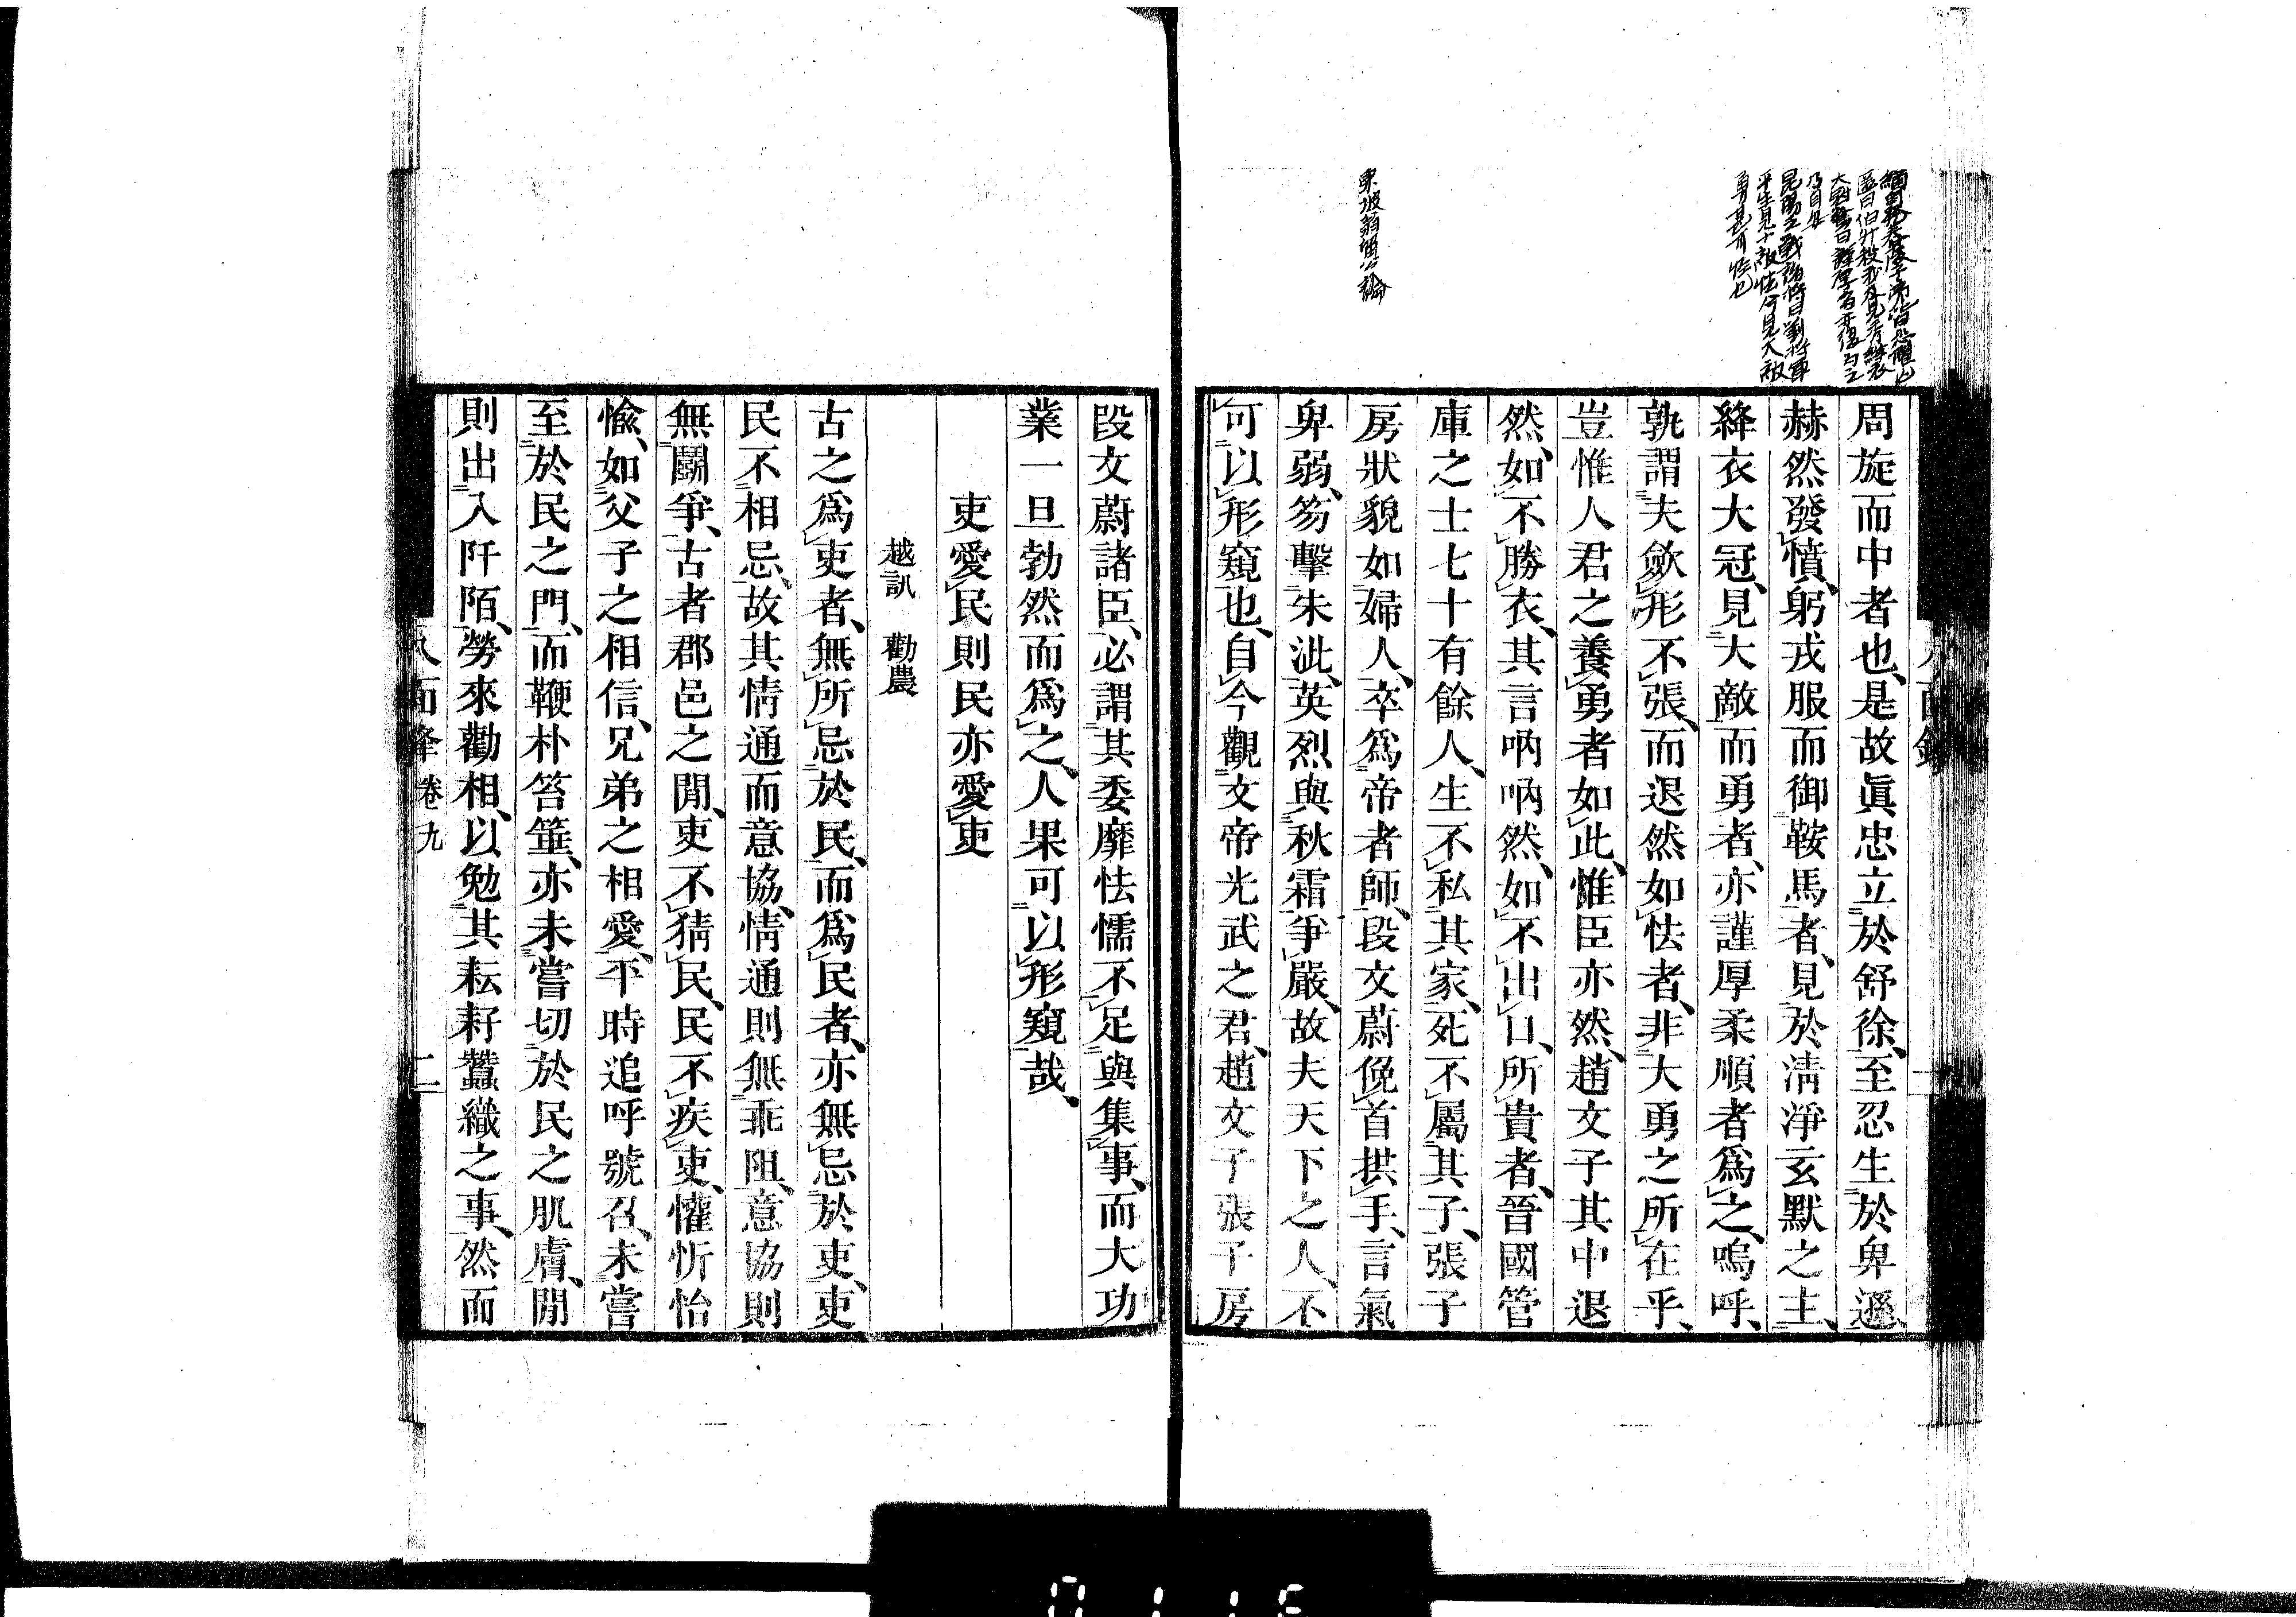 周旋而中者也、是故眞忠立於舒徐、至忍生於卑遜、
赫然發憤、躬戎服而御鞍馬者、見於淸淨玄默之主、
絳衣大冠、見大敵而勇者、亦謹厚柔順者爲之、嗚呼、
孰謂夫歛形不張、而退然如怯者、非大勇之所在乎、
豈惟人君之養勇者如此、惟臣亦然、趙文子其中退
然、如不勝衣、其言吶吶然、如不出口、所貴者、晉國管
庫之士七十有餘人、生不私其家、死不屬其子、張子
房狀貌如婦人、卒爲帝者師、段文蔚俛首拱手、言氣
卑弱、笏擊朱泚、英烈與秋霜爭嚴、故夫天下之人、不
可以形窺也、自今觀文帝光武之君、趙文子張子房
段文蔚諸臣、必謂其委靡怯懦不足與集事、而大功
業一旦勃然而爲之、人果可以形窺哉、
吏愛民則民亦愛吏
越訴 勸農
古之爲吏者、無所忌於民、而爲民者、亦無忌於吏、吏
民不相忌、故其情通而意協、情通則無乖阻、意協則
無鬭爭、古者郡邑之閒、吏不猜民、民不疾吏、懽忻怡
愉、如父子之相信、兄弟之相愛、平時追呼號召、未嘗
至於民之門、而鞭朴笞箠、亦未嘗切於民之肌膚、閒
則出入阡陌、勞來勸相、以勉其耘耔蠶織之事、然而
八面鋒 卷九 二
東坡
昆陽之戰諸將曰劉將軍
平生見小敵怯今見大敵
勇甚可怪也